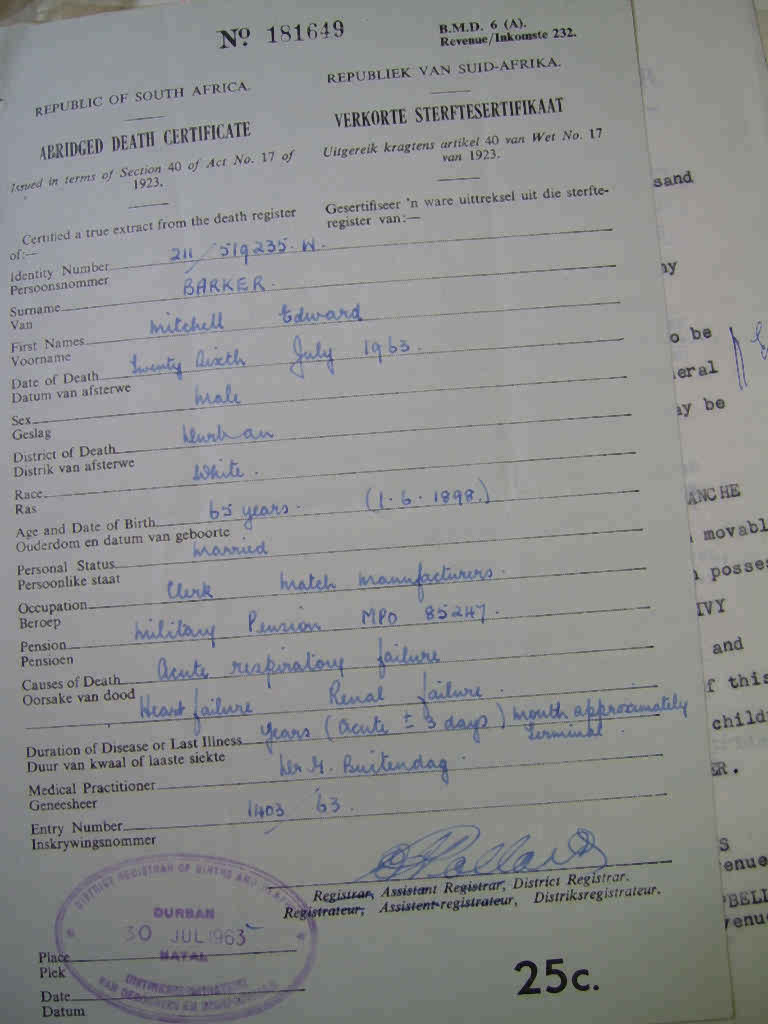 No 181649
B.M.D. 6 (A).
Revenue/Inkomste 232.
REPUBLIC OF SOUTH AFRICA.
ABRIDGED DEATH CERTIFICATE
Issued in terms of Section 40 of Act No. 17 of
1923.
Certified a true extract from the death register
of:—
REPUBLIEK VAN SUID-AFRIKA.
VERKORTE STERFTESERTIFIKAAT
Uitgereik kragtens artikel 40 van Wet No. 17
van 1923.
Gesertifiseer 'n ware uittreksel uit die sterfte-
register van:—
Identity Number 211/519235. W.
Persoonsnommer
Surname BARKER.
Van
First Names Mitchell Edward
Voorname
Date of Death Twenty Sixth July 1963.
Datum van afsterwe
Sex Male
Geslag
District of Death Durban
Distrik van afsterwe
Race White.
Ras
Age and Date of Birth 65 years. (1.6.1898.)
Ouderdom en datum van geboorte
Personal Status Married
Persoonlike staat
Occupation Clerk Match Manufacturers.
Beroep
Pension Military Pension MPO 85247.
Pensioen
Causes of Death Acute respiratory failure
Oorsake van dood Heart failure Renal failure.
Duration of Disease or Last Illness years (acute ± 3 days) month approximately
Duur van kwaal of laaste siekte terminal.
Medical Practitioner Dr G. Buitendag.
Geneesheer
Entry Number 1403/63.
Inskrywingsnommer
Registrar, Assistant Registrar, District Registrar.
Registrateur, Assistent-registrateur, Distriksregistrateur.
DISTRICT REGISTRAR OF BIRTHS AND DEATHS
DURBAN
30 JUL 1963
NATAL
Place
Plek
Date
Datum
25c.
sand
ny
o be
eral
ay be
ANCHE
movabl
posses
IVY
and
f this
child
ER.
S
enue
PBELL
venu